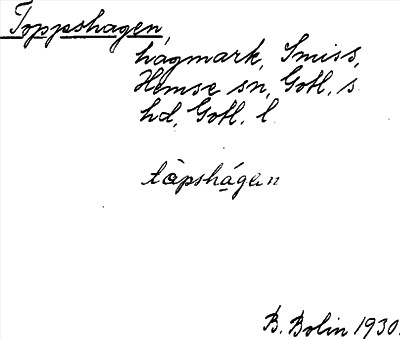 Toppshagen,
hagmark, Smiss,
Hemse sn, Gotl. s.
hd, Gotl. l.
tàpshágan
B. Bolin 1930.